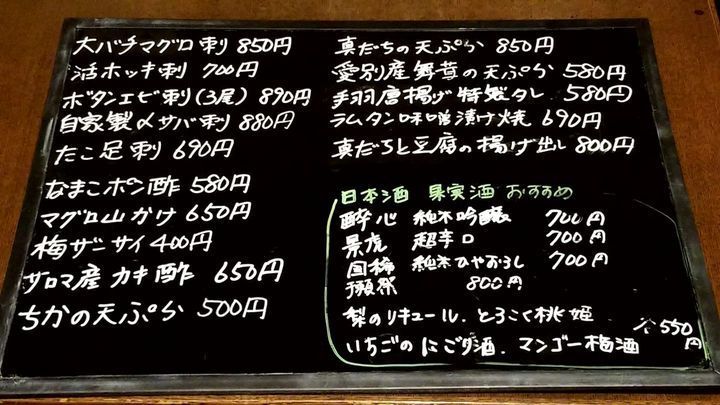 大バチマグロ刺 850円
活ホッキ刺 700円
ボタンエビ刺(3尾) 890円
自家製〆サバ刺 880円
たこ足刺 690円
なまこポン酢 580円
マグロ山かけ 650円
梅ザーサイ 400円
サロマ産カキ酢 650円
ちかの天ぷら 500円
真だちの天ぷら 850円
愛別産舞茸の天ぷら 580円
手羽唐揚げ特製タレ 580円
ラムタン味噌漬け焼 690円
真だちと豆腐の揚げ出し 800円
日本酒 果実酒 おすすめ
酔心 純米吟醸 700円
景虎 超辛口 700円
国稀 純米ひやおろし 700円
獺祭 800円
梨のリキュール、とろこく桃姫
いちごのにごり酒、マンゴー梅酒
各550円